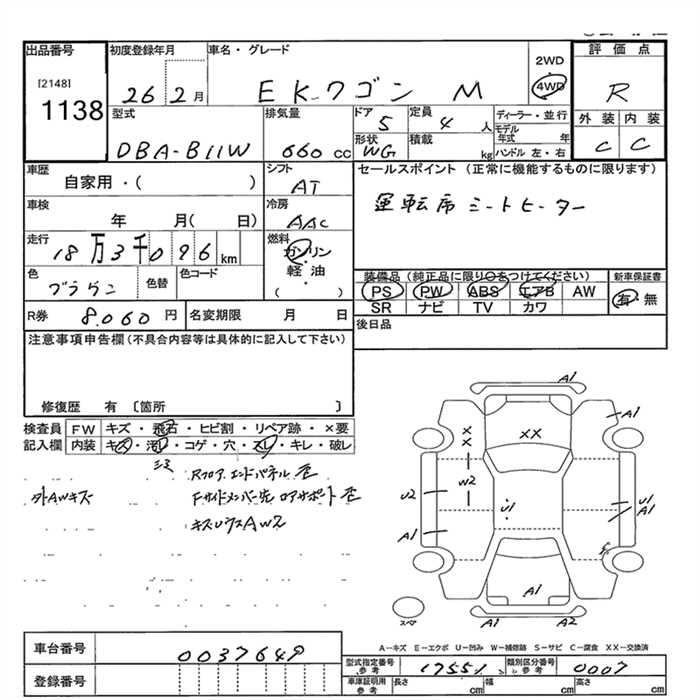 出品番号
[2148]
1138
初度登録年月
26 2月
車名・グレード
EKワゴン M
2WD
4WD
評価点
R
外装 内装
C C
型式
DBA-B11W
排気量
660 cc
ドア 5
形状 WG
定員 4 人
積載 kg
ディーラー・並行
モデル年式 年
ハンドル 左・右
車歴
自家用・( )
シフト
AT
車検
年 月( 日)
冷房
AAC
走行
18万3千096 km
燃料
ガソリン
・
軽油
( )
色
ブラウン
色替
色コード
R券 8,060 円
名変期限 月 日
セールスポイント (正常に機能するものに限ります)
運転席シートヒーター
装備品 (純正品に限り○をつけてください)
PS PW ABS エアB AW
SR ナビ TV カワ
新車保証書
有・無
後日品
注意事項申告欄(不具合内容等は具体的に記入して下さい)
修復歴 有 〔箇所 〕
検査員記入欄
FW キズ・飛石・ヒビ割・リペア跡・×要
内装 キズ・汚レ・コゲ・穴・スレ・キレ・破レ
外AWキズ
A1
A1
XX
X
X
W2
U2
A1
U1
U1
A1
A1
A1
A2
スペア
A-キズ E-エクボ U-凹み W-補修跡 S-サビ C-腐食 XX-交換済
車台番号 0037649
登録番号
型式指定番号 参考 17551
類別区分番号 参考 0007
車庫証明用 参考 長さ cm 幅 cm 高さ cm